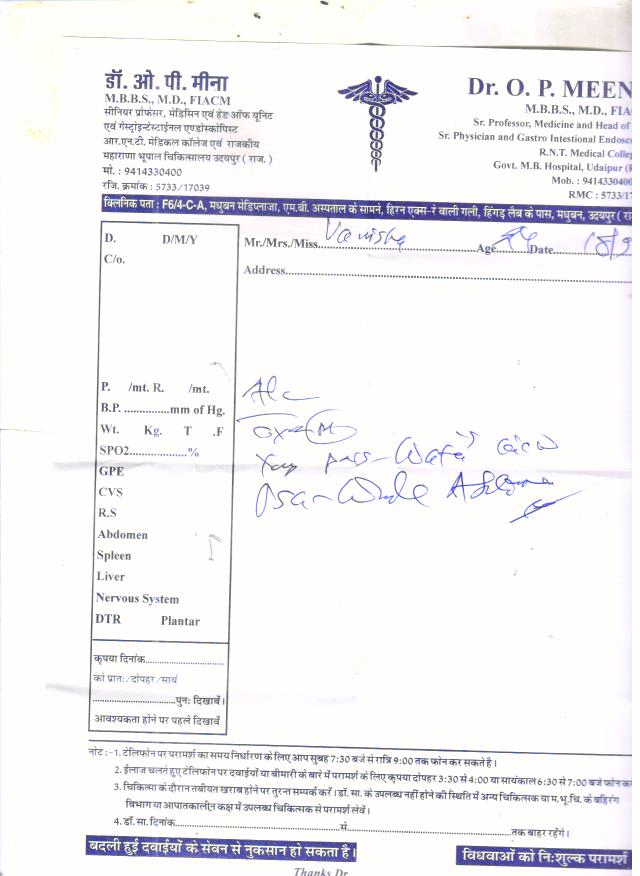 डॉ. ओ. पी. मीना
M.B.B.S., M.D., FIACM
सीनियर प्रोफेसर, मेडिसिन एवं हेड ऑफ यूनिट
एवं गेस्ट्रोइन्टेस्टाईनल एण्डोस्कोपिस्ट
आर.एन.टी. मेडिकल कॉलेज एवं राजकीय
महाराणा भूपाल चिकित्सालय उदयपुर ( राज. )
मो. : 9414330400
रजि. क्रमांक : 5733/17039
Dr. O. P. MEEN
M.B.B.S., M.D., FIA
Sr. Professor, Medicine and Head of
Sr. Physician and Gastro Intestional Endosc
R.N.T. Medical Colleg
Govt. M.B. Hospital, Udaipur (R
Mob. : 9414330400
RMC : 5733/1
क्लिनिक पता : F6/4-C-A, मधुबन मेडिप्लाजा, एम.बी. अस्पताल के सामने, हिरन एक्स-रे वाली गली, हिंगड़ लैब के पास, मधुबन, उदयपुर ( रा
D. D/M/Y
C/o.
Mr./Mrs./Miss. Age Date
Address
P. /mt. R. /mt.
B.P. ...............mm of Hg.
Wt. Kg. T .F
SPO2...................%
GPE
CVS
R.S
Abdomen
Spleen
Liver
Nervous System
DTR Plantar
Whole Abdomen
कृपया दिनांक..........................
को प्रातः/दोपहर/सायं
............................पुनः दिखावें।
आवश्यकता होने पर पहले दिखावें
नोट :-1. टेलिफोन पर परामर्श का समय निर्धारण के लिए आप सुबह 7:30 बजे से रात्रि 9:00 तक फोन कर सकते है।
2. ईलाज चलते हुए टेलिफोन पर दवाईयों या बीमारी के बारे में परामर्श के लिए कृपया दोपहर 3:30 से 4:00 या सायंकाल 6:30 से 7:00 बजे फोन कर
3. चिकित्सा के दौरान तबीयत खराब होने पर तुरन्त सम्पर्क करें। डॉ. सा. के उपलब्ध नहीं होने की स्थिति में अन्य चिकित्सक या म.भू.चि. के बहिरंग
विभाग या आपातकालीन कक्ष में उपलब्ध चिकित्सक से परामर्श लेवें।
4. डॉ. सा. दिनांक..........................से..........................तक बाहर रहेंगे।
बदली हुई दवाईयों के सेवन से नुकसान हो सकता है।
विधवाओं को निःशुल्क परामर्श
Thanks Dr